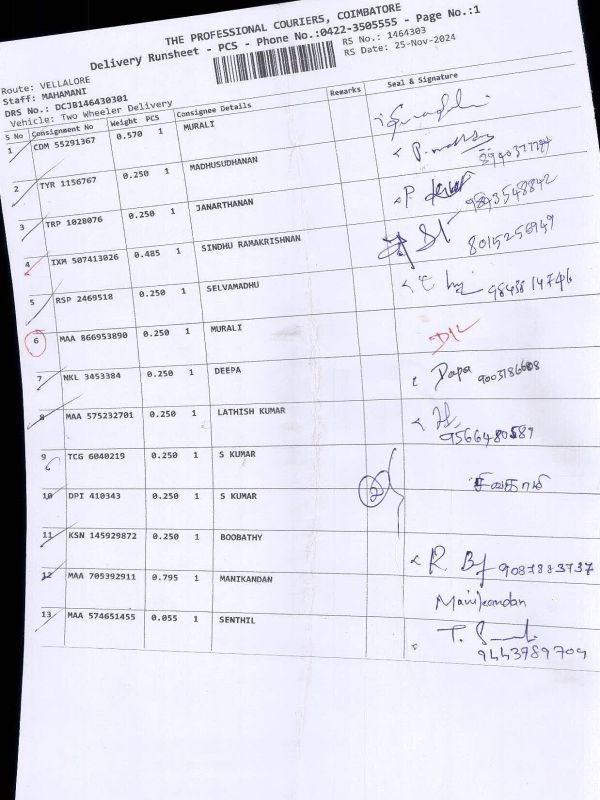 THE PROFESSIONAL COURIERS, COIMBATORE
Delivery Runsheet - PCS - Phone No.:0422-3505555 - Page No.:1
RS No.: 1464303
RS Date: 25-Nov-2024
Route: VELLALORE
Staff: MAHAMANI
DRS No.: DCJB146430301
Vehicle: Two Wheeler Delivery
S No Consignment No Weight PCS Consignee Details Remarks Seal & Signature
1 CDM 55291367 0.570 1 MURALI
2 TYR 1156767 0.250 1 MADHUSUDHANAN
3 TRP 1028076 0.250 1 JANARTHANAN 9843548842
4 IXM 507413026 0.485 1 SINDHU RAMAKRISHNAN 8015256949
5 RSP 2469518 0.250 1 SELVAMADHU
6 MAA 866953890 0.250 1 MURALI D/L
7 NKL 3453384 0.250 1 DEEPA Dapa 9003186608
8 MAA 575232701 0.250 1 LATHISH KUMAR
9 TCG 6040219 0.250 1 S KUMAR
10 DPI 410343 0.250 1 S KUMAR 2
11 KSN 145929872 0.250 1 BOOBATHY R. 9087883737
12 MAA 705392911 0.795 1 MANIKANDAN Manikandan
13 MAA 574651455 0.055 1 SENTHIL T. 9443989709